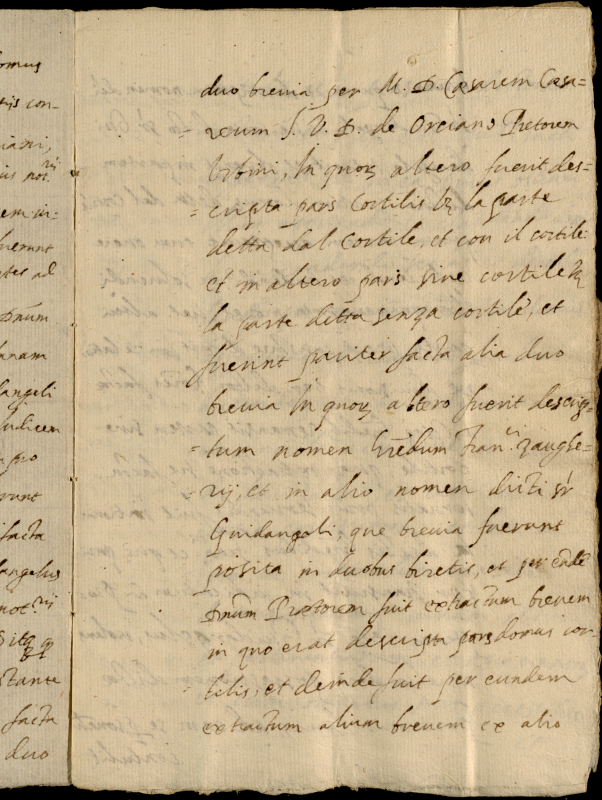 omus
tijs con-
iani,
is not.rij
em in-
fuerunt
tes ad
Dnũm
anam
angeli
udicem
pro
runt
facta
angelus
not.rij
tante
facta
duo
duo brevia per M. D. Cæsarem Cæsa=
reum J. V. D. de Orciano Pretorem
Urbini, In quorꝝ altero fuerit des=
=cripta pars Cortilis lꝫ la parte
detta dal Cortile, et con il cortile
et in altero pars sine cortile lꝫ
la parte detta senza cortile, et
fuerint pariter facta alia duo
brevia In quorꝝ altero fuerit descrip=
=tum nomen hrẽdum Fran.ci Zaughe=
rij, et in alio nomen dicti sr̃
Guidangeli, que brevia fuerunt
posita in duobus biretis, et per eũdẽ
Dnũm Prætorem fuit extractum brevem
in quo erat descripta pars domus cor
tilis, et deinde fuit per eundem
extractum alium brevem ex alio